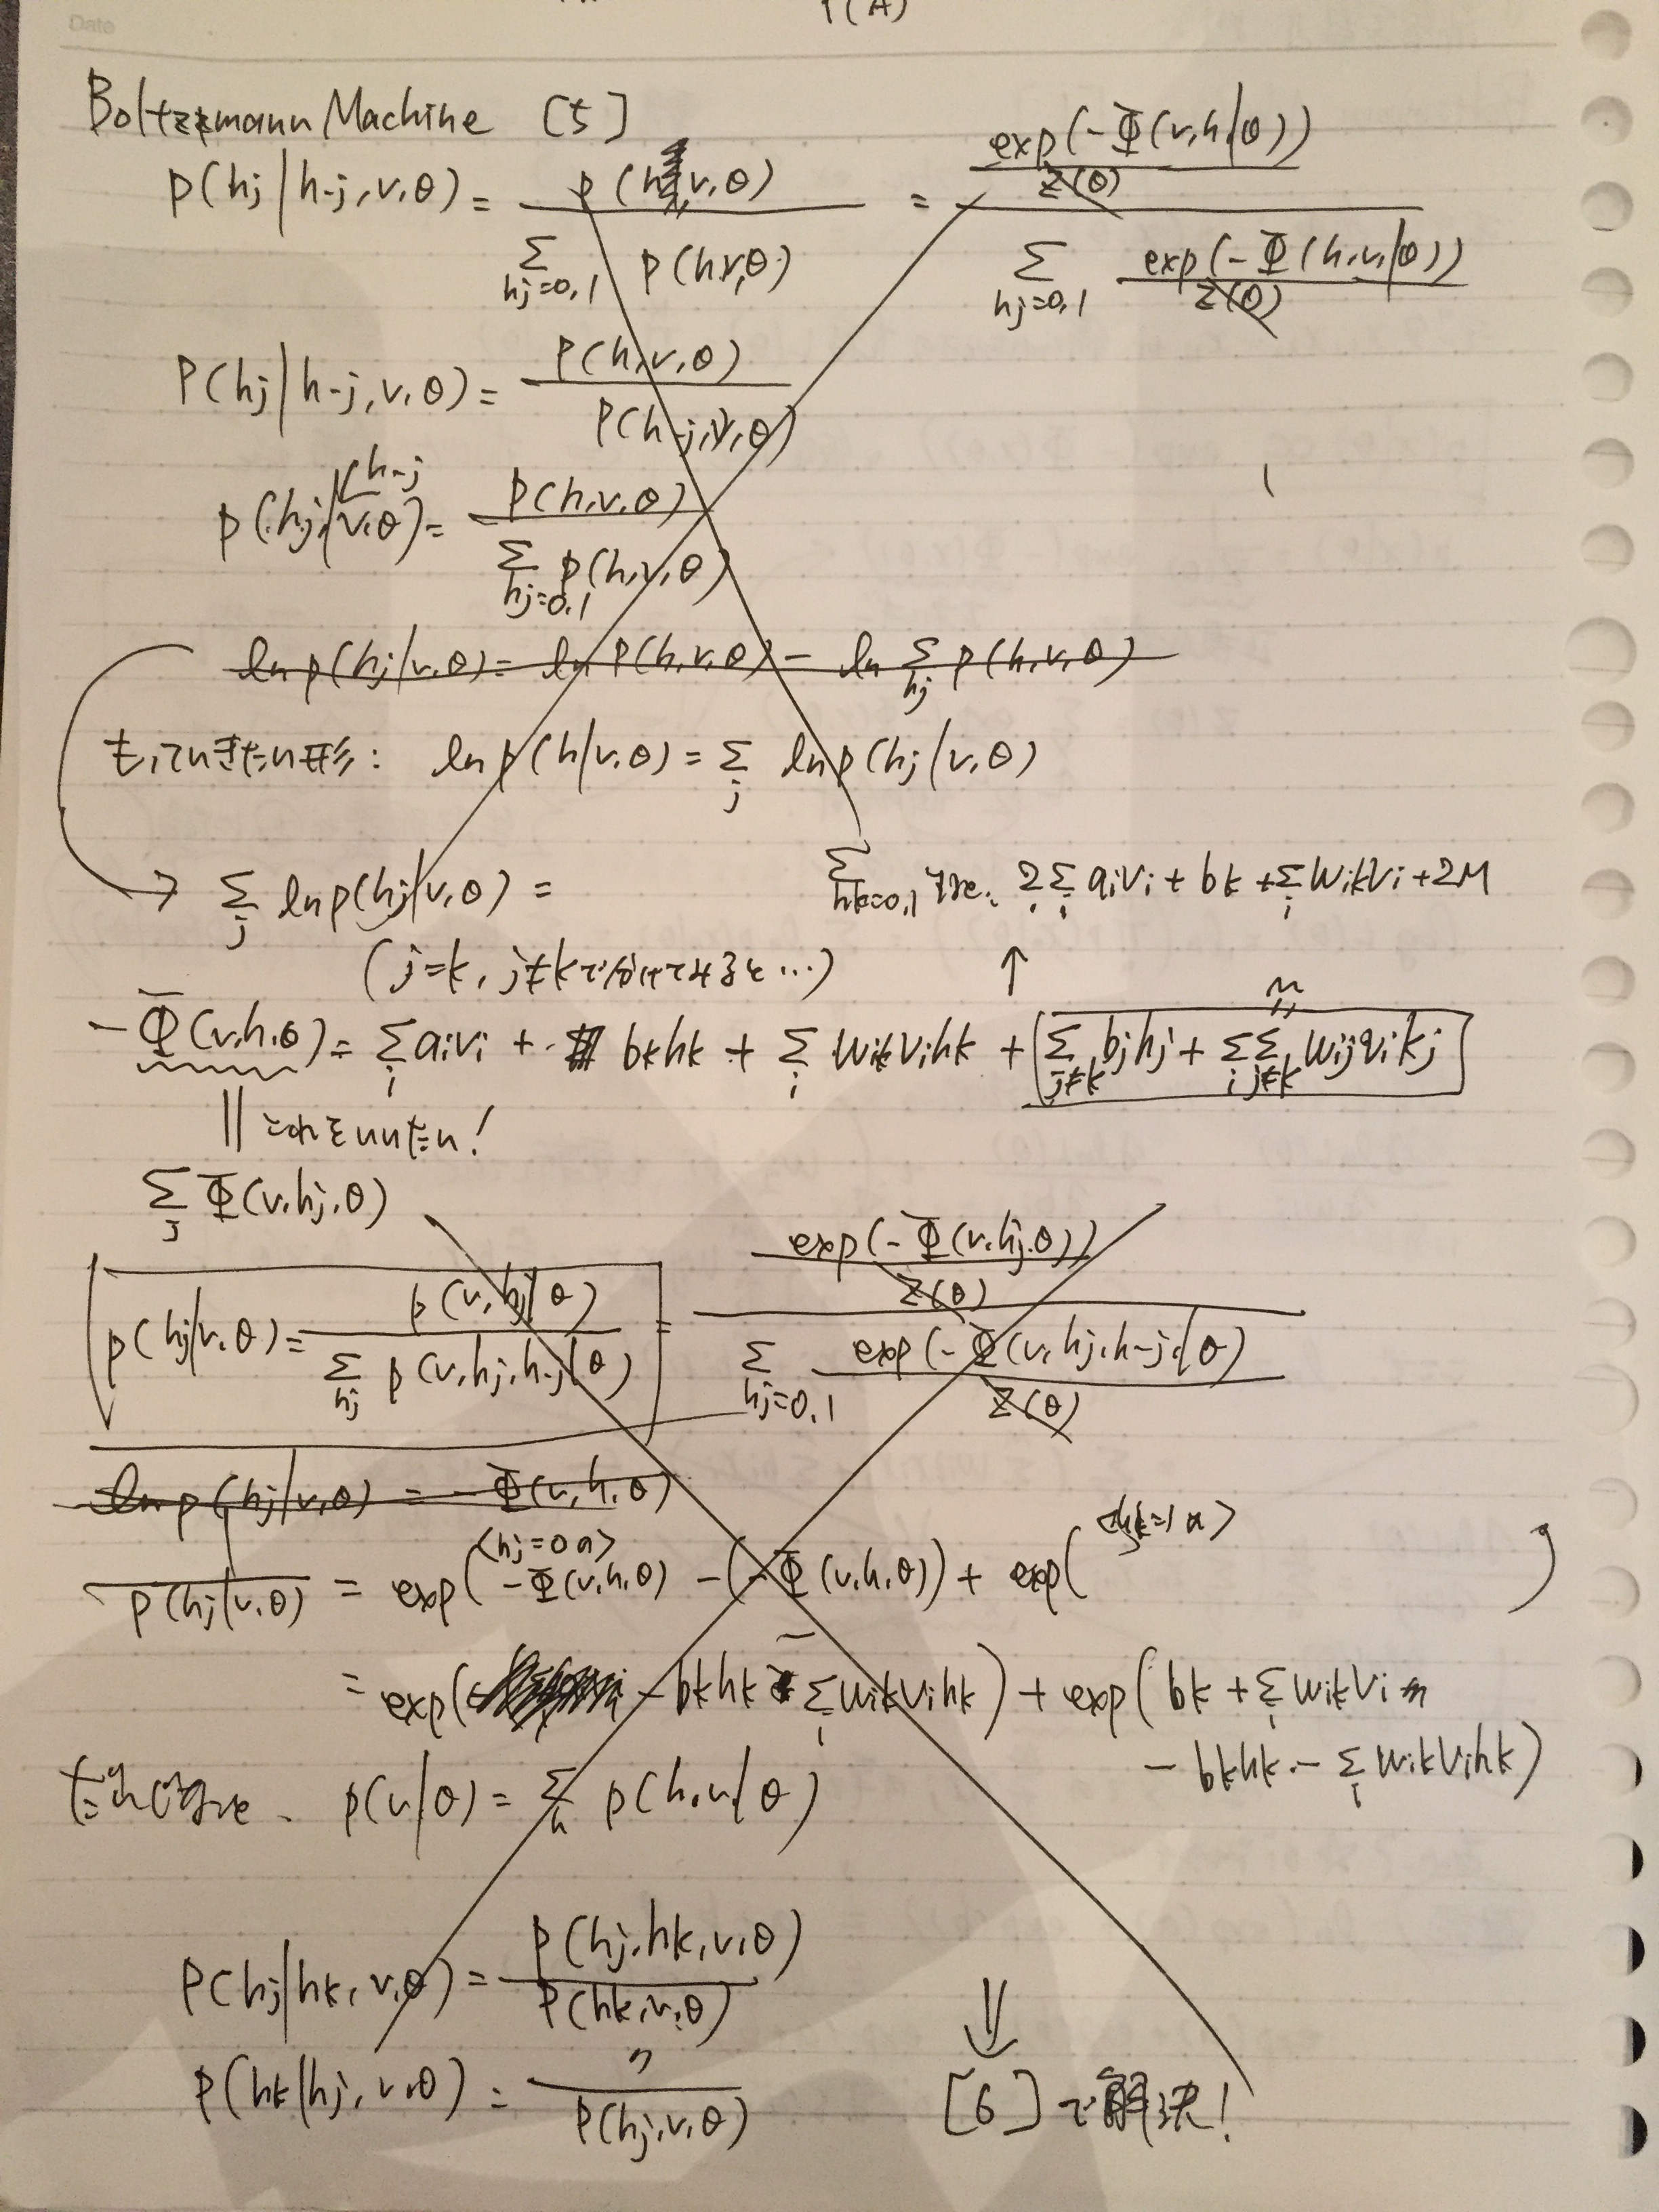 Date
P(A)
Boltzmann Machine [5]
p(hj|h-j,v,θ) = p(h,v,θ) / Σ_{hj=0,1} p(h,v,θ) = (exp(-Φ(v,h,|θ)) / Z(θ)) / (Σ_{hj=0,1} exp(-Φ(h,v,|θ)) / Z(θ))
P(hj|h-j,v,θ) = P(h,v,θ) / P(h-j,v,θ)
h-j
p(hj|v,θ) = P(h,v,θ) / Σ_{hj=0,1} p(h,v,θ)
ln p(hj|v,θ) = ln P(h,v,θ) - ln Σ_{hj} p(h,v,θ)
もっていきたい形: ln p(h|v,θ) = Σ_j ln p(hj|v,θ)
→ Σ_j ln p(hj|v,θ) =
Σ_{hk=0,1} 2Σ_i aivi + bk + Σ_i wikvi + 2M
(j=k, j≠kで分けてみると…)
↑
M
-Φ(v,h,θ) = Σ_i aivi + bkhk + Σ_i wikvihk + Σ_{j≠k} bjhj + Σ_i Σ_{j≠k} wijvihj
|| これをいいたい!
Σ_j Φ(v,hj,θ)
p(hj|v,θ) = p(v,hj|θ) / Σ_{hj} p(v,hj,h-j|θ) = (exp(-Φ(v,hj,θ)) / Z(θ)) / (Σ_{hj=0,1} exp(-Φ(v,hj,h-j,|θ)) / Z(θ))
ln p(hj|v,θ) = -Φ(v,h,θ)
<hj=0の> <hk=1の>
1 / p(hj|v,θ) = exp(-Φ(v,h,θ) - (-Φ(v,h,θ)) + exp( )
= exp( -bkhk - Σ_i wikvihk) + exp(bk + Σ_i wikvi
- bkhk - Σ_i wikvihk)
p(v|θ) = Σ_h p(h,v|θ)
P(hj|hk,v,θ) = P(hj,hk,v,θ) / P(hk,v,θ)
P(hk|hj,v,θ) = 〃 / P(hj,v,θ)
⇓
[6]で解決!